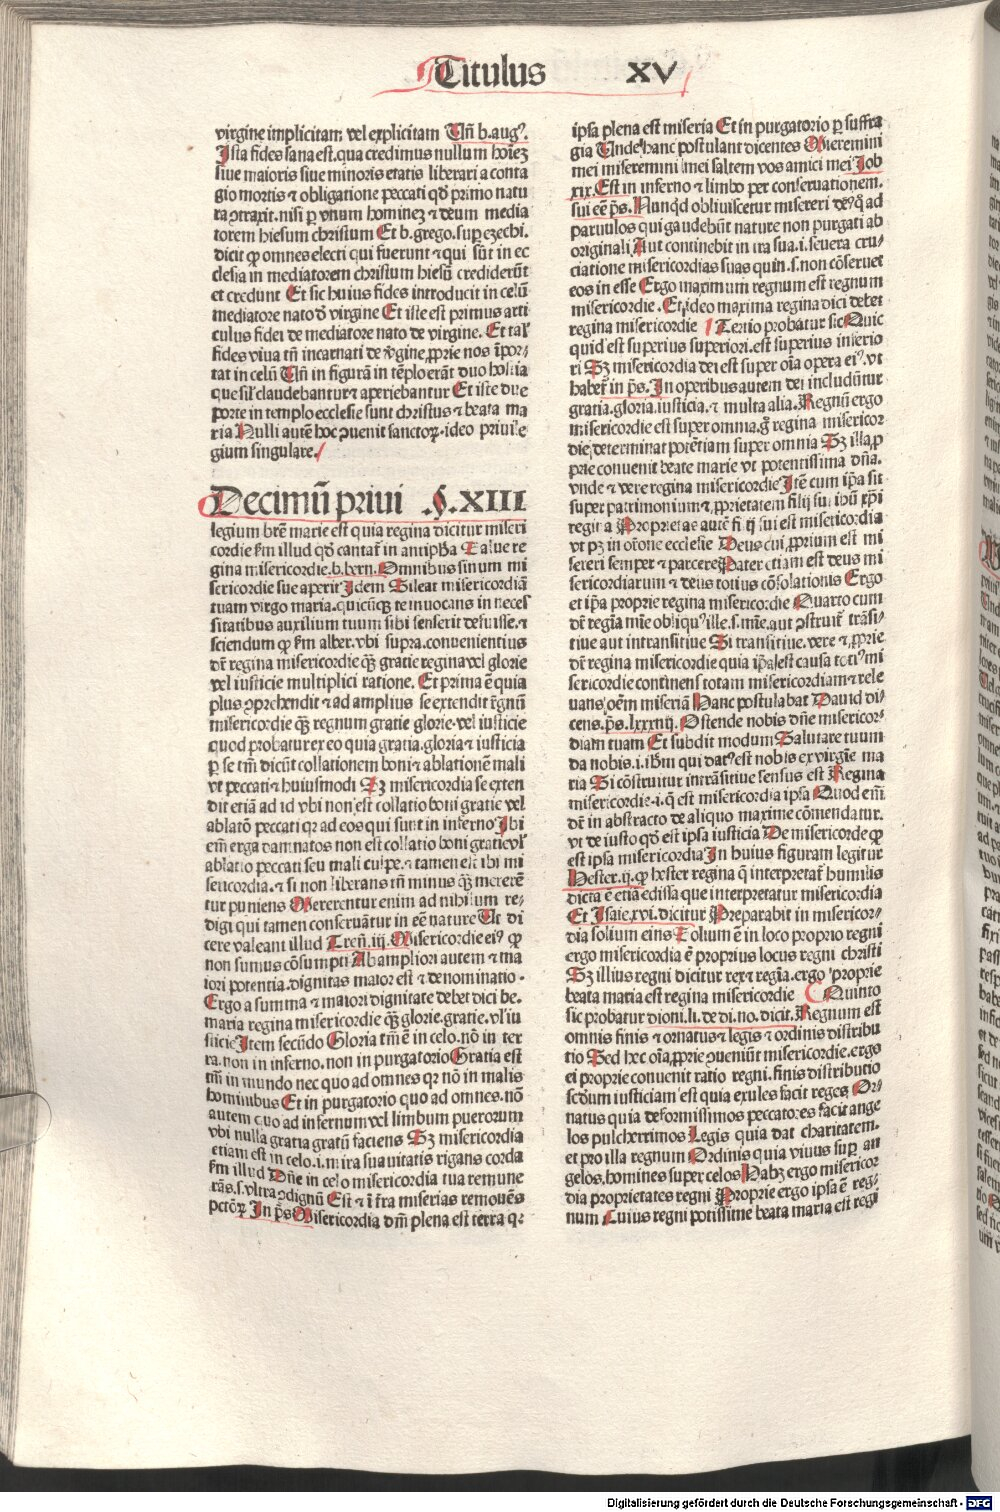 Titulus XV
virgine implicitam vel explicitam Uñ b.augꝰ.
Ista fides sana est.qua credimus nullum hoiēꝫ
siue maioris siue minoris etatis liberari a conta
gio mortis ⁊ obligatione peccati qd̕ primo natu
ra ꝯtraxit.nisi ꝑ vnum homineꝫ ⁊ deum media
torem hiesum christum Et b.grego.sup ezechi.
dicit ꝙ omnes electi qui fuerunt ⁊qui sūt in ec
clesia in mediatorem christum hiesū crediderūt
et credunt Et sic huius fides introducit in celū
mediatore nato d̕ virgine Et iste est primus arti
culus fidei de mediatore nato de virgine. Et tal̕
fides viua tñ incarnati de v̕gine ꝓprie nos īpor⸗
tat in celū Uñ in figurā in tēplo erāt duo hostia
que sil̕ claudebantur ⁊ aperiebantur Et iste due
porte in templo ecclesie sunt christus ⁊ beata ma
ria Nulli autē hoc ꝯuenit sanctoꝝ.ideo priuile
gium singulare.
Decimū priui .§.XIII
legium btē marie est quia regina dicitur miseri
cordie ẜm illud qd̕ cantat̕ in antipha Salue re
gina misericordie.b.bern.Omnibus sinum mi
sericordie sue aperit Idem Sileat misericordiā
tuam virgo maria.quicūqꝫ te inuocans in neces
sitatibus auxilium tuum sibi senserit defuisse.⁊
sciendum ꝙ ẜm alber.vbi supra.conuenientius
dr̄ regina misericordie qꝫ̄ gratie regina vel glorie
vel iusticie multiplici ratione. Et prima ē quia
plus ꝯprehendit ⁊ ad amplius se extendit r̄gnū
misericordie qꝫ̄ regnum gratie glorie.vel iusticie
quod probatur ex eo quia gratia.gloria ⁊ iusticia
ꝑ se tm̄ dicūt collationem boni ⁊ ablationē mali
vt peccati ⁊ huiusmodi Sꝫ misericordia se exten
dit etiā ad id vbi non est collatio boni gratie vel
ablatō peccati qꝛ ad eos qui sunt in inferno Ibi
em̄ erga damnatos non est collatio boni gratie vl̕
ablatio peccati seu mali culpe.⁊ tamen est ibi mi
sericordia.⁊ si non liberans tm̄ minus qꝫ̄ mererē
tur puniens Mererentur enim ad nihilum re⸗
digi qui tamen conseruātur in eē nature Ut di
cere valeant illud Tren̄.iij.Misericordie eiꝰ ꝙ
non sumus cōsumpti Ab ampliori autem ⁊ ma
iori potentia.dignitas maior est ⁊ denominatio.
Ergo a summa ⁊ maiori dignitate debet dici be.
maria regina misericordie qꝫ̄ glorie.gratie.vl̕iu
sticie Item secūdo Gloria tm̄ ē in celo.nō in ter
ra.non in inferno.non in purgatorio Gratia est
tm̄ in mundo nec quo ad omnes qꝛ nō in malis
hominibus Et in purgatorio quo ad omnes.nō
autem quo ad infernum vel limbum puerorum
vbi nulla gratia gratū faciens Sꝫ misericordia
etiam est in celo.i.mira suauitatis rigans corda
ẜm illud Dn̄e in celo misericordia tua remune
rās.s.vltra ꝯdignū Est ⁊ ī tra miserias remouēs
pctōꝝ In ps̄ Misericordia dn̄i plena est terra qꝛ
ipsa plena est miseria Et in purgatorio ꝑ suffra
gia Unde hanc postulant dicentes Miseremini
mei miseremini mei saltem vos amici mei Job
xix.Est in inferno ⁊ limbo per conseruationem.
sui eē ps̄.Nunqd̕ obliuiscetur misereri deꝰ q̄ ad
paruulos qui gaudebūt nature non purgati ab
originali Aut continebit in ira sua.i.seuera cru⸗
ciatione misericordias suas quin.s.non cōseruet
eos in esse Ergo maximum regnum est regnum
misericordie.Et ideo maxima regina dici debet
regina misericordie Tertio probatur sic Quic
quid est superius superiori.est superius inferio
ri Sꝫ misericordia dei est super oīa opera eiꝰ.vt
habet̕ in ps̄.In operibus autem dei includūtur
gratia.gloria.iusticia.⁊ multa alia.Regnū ergo
misericordie est super omnia.g̊ regina misericor
die determinat potētiam super omnia Sꝫ illa ꝓ
prie conuenit beate marie vt potentissima dn̄a.
vnde ⁊ vere regina misericordie Itē cum ip̄a sit
super patrimonium ⁊ ꝓprietatem filij sui ihū xp̄i
regina Proprietas autē fi ij sui est misericordia
vt pꝫ in or̄one ecclesie Deus cui ꝓprium est mi
sereri semper ⁊ parcere Pater etiam est deus mi
sericordiarum ⁊ deus totius cōsolationis Ergo
et ip̄a proprie regina misericordie Quarto cum
dr̄ regīa mīe obliquꝰ ille.s.mīe.aut ꝯstruit̕ trāsi⸗
tiue aut intransitiue Si transitiue.vere ⁊ ꝓprie
dr̄ regina misericordie quia ip̄a est causa totiꝰ mi
sericordie continens totam misericordiam ⁊ rele
uans oēm miseriā Hanc postulabat Dauid di⸗
cens.ps̄.lxxxiiij.Ostende nobis dn̄e misericor⸗
diam tuam Et subdit modum Salutare tuum
da nobis.i.ihm̄ qui datꝰ est nobis ex virgīe ma
ria Si cōstruitur intrāsitiue sensus est Regina
misericordie.i.q̄ est misericordia ipsa Quod em̄
dr̄ in abstracto de aliquo maxime cōmendatur.
vt de iusto qd̕ est ipsa iusticia De misericorde ꝙ
est ipsa misericordia In huius figuram legitur
Hester.ij.ꝙ hester regina q̄ interpretat̕ humilis
dicta ē etiā edissa que interpretatur misericordia
Et Isaie.xvi.dicitur Preparabit in misericor⸗
dia solium eius Solium ē in loco proprio regni
ergo misericordia ē proprius locus regni christi
Sꝫ illius regni dicitur rex ⁊ regīa.ergo proprie
beata maria est regina misericordie Quinto
sic probatur dioni.li.de di.no.dicit.Regnum est
omnis finis ⁊ ornatus ⁊ legis ⁊ ordinis distribu
tio Sed hec oīa ꝓprie ꝯueniūt misericordie.ergo
ei proprie conuenit ratio regni.finis distributio
scd̕um iusticiam est quia exules facit reges Or⸗
natus quia deformissimos peccatores facit ange
los pulcherrimos Legis quia dat charitatem.
et pro illa regnum Ordinis quia vnius sup̄ an
gelos.homines super celos Habꝫ ergo misericor
dia proprietates regni Proprie ergo ipsa ē reg⸗
num Cuius regni potissime beata maria est regi
Digitalisierung gefördert durch die Deutsche Forschungsgemeinschaft - DFG